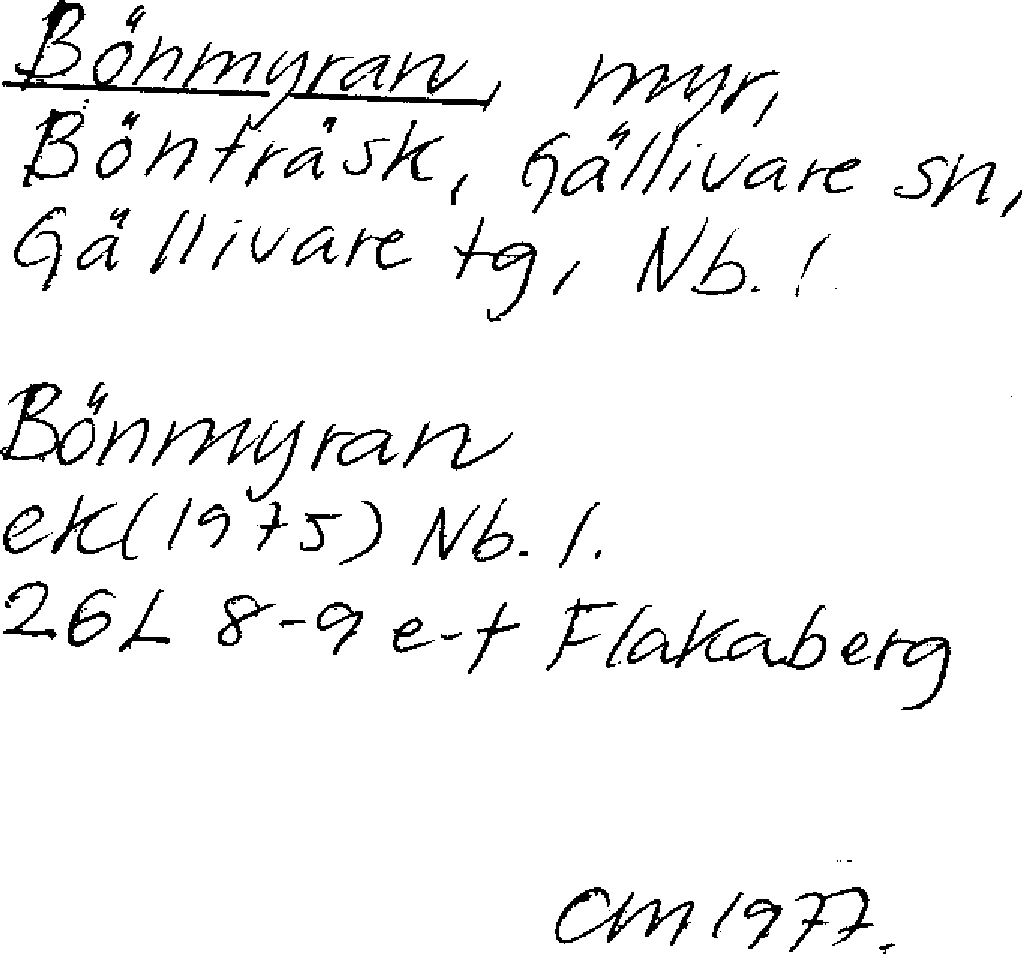 Bönmyran, myr,
Bönträsk, Gällivare sn,
Gällivare tg, Nb. l.
Bönmyran
ek(1975) Nb. l.
26L 8-9 e-f Flakaberg
CM 1977.